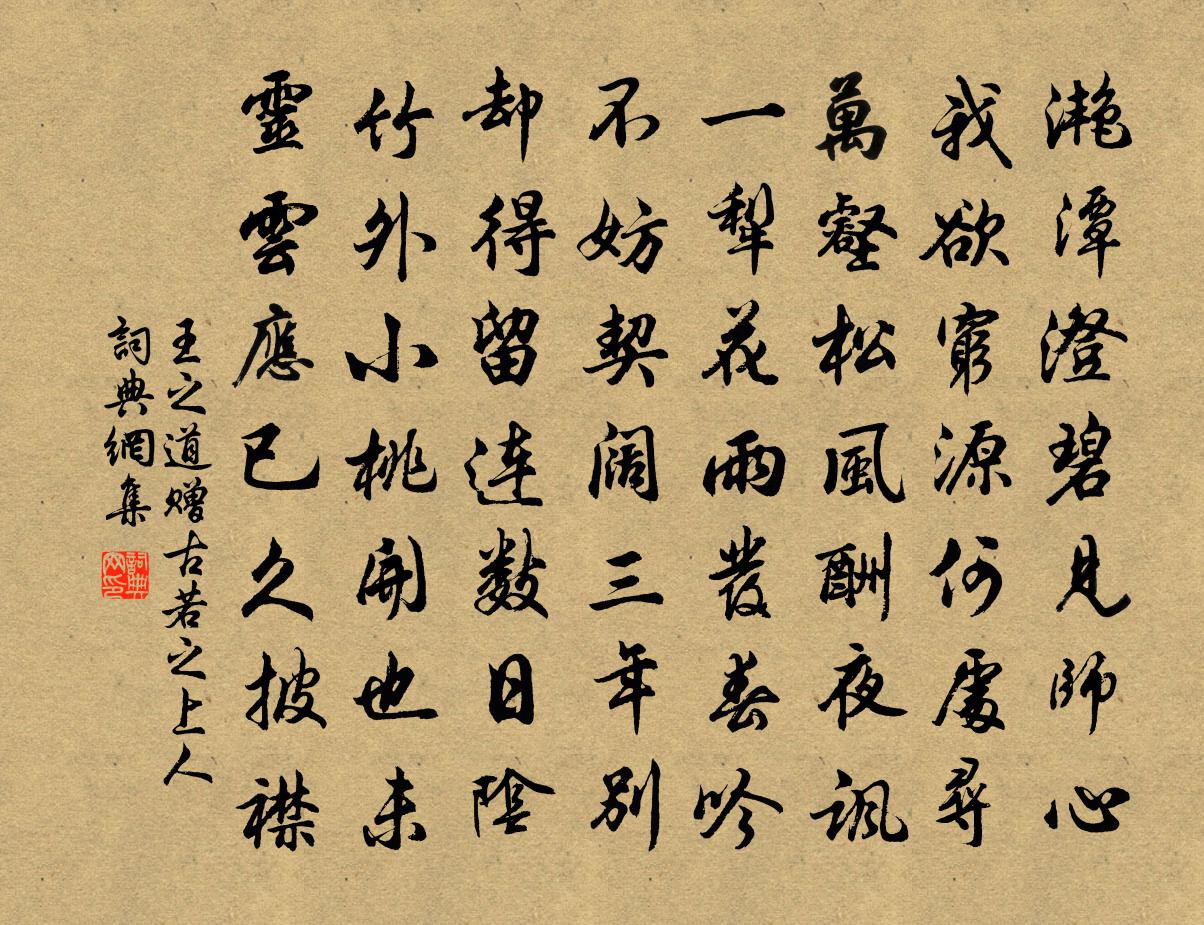 灔潭澄碧見師心
我欲窮源何處尋
萬壑松風酬夜諷
一犁花雨發春吟
不妨契阔三年别
却得留連數日陰
竹外小桃開也未
靈雲應已久披襟
王之道赠古若之上人
詞典網集
詞典網印